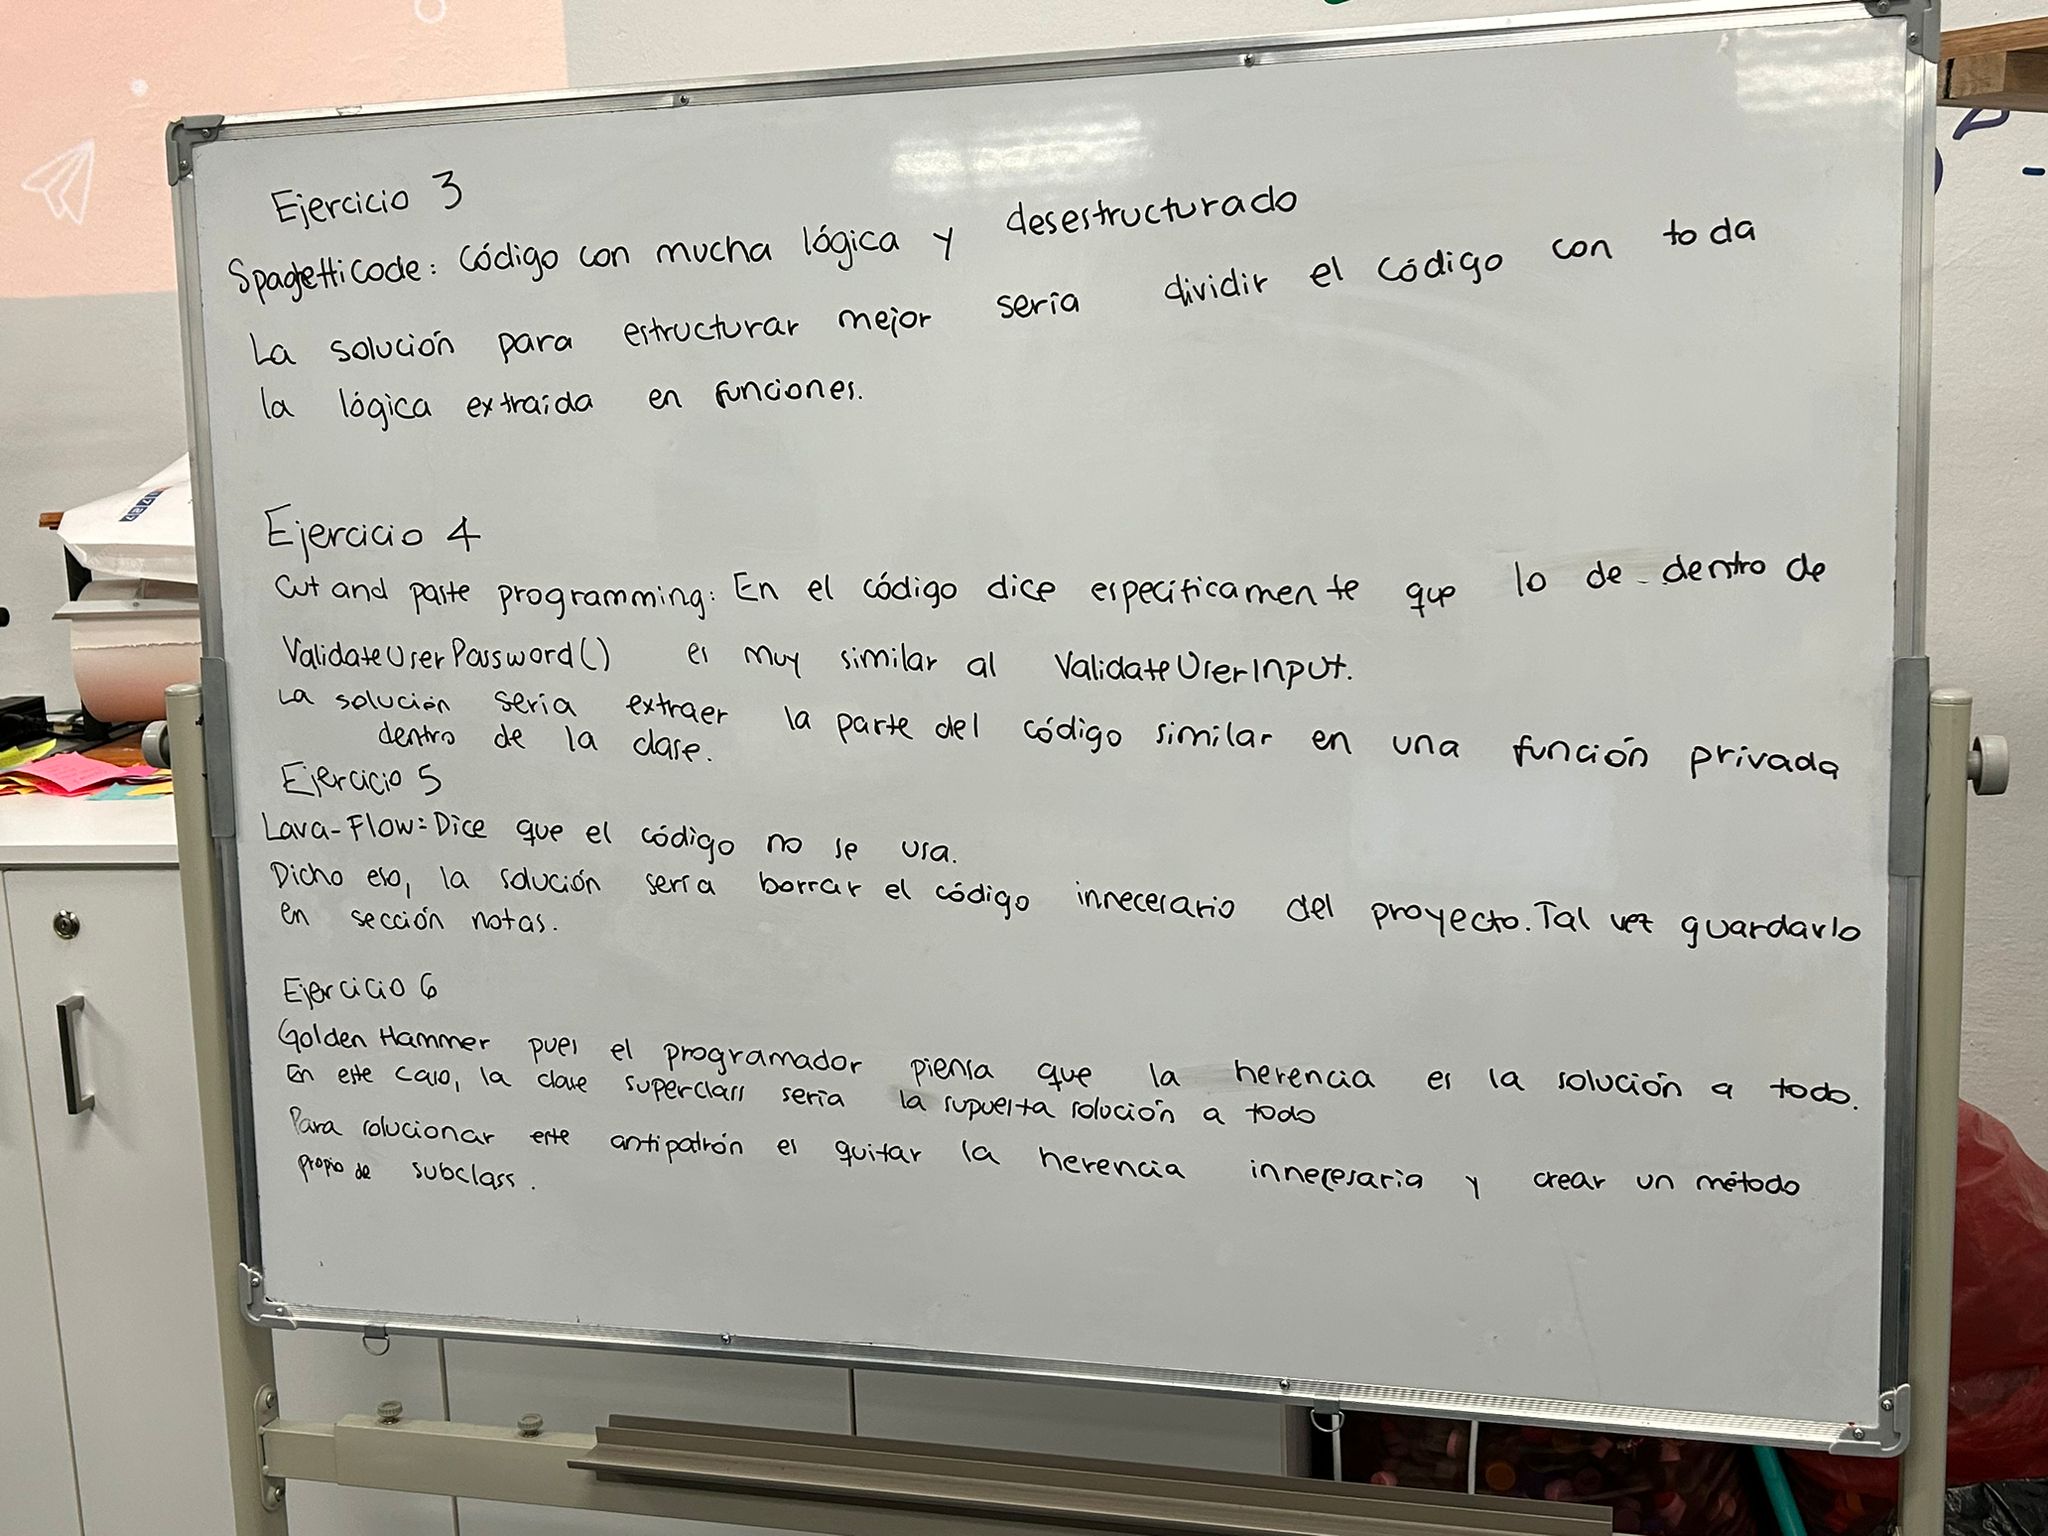 Ejercicio 3
Spaghetti Code: Código con mucha lógica y desestructurado
La solución para estructurar mejor sería dividir el código con toda
la lógica extraída en funciones.
Ejercicio 4
Cut and paste programming: En el código dice específicamente que lo de dentro de
ValidateUserPassword() es muy similar al ValidateUserInput.
La solución sería extraer la parte del código similar en una función privada
dentro de la clase.
Ejercicio 5
Lava-Flow: Dice que el código no se usa.
Dicho eso, la solución sería borrar el código innecesario del proyecto. Tal vez guardarlo
en sección notas.
Ejercicio 6
Golden Hammer pues el programador piensa que la herencia es la solución a todo.
En este caso, la clase superclass sería la supuesta solución a todo
Para solucionar este antipatrón es quitar la herencia innecesaria y crear un método
propio de subclass.